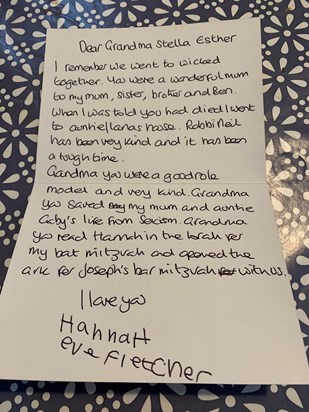 Dear Grandma Stella Esther
I remember we went to wicked
together. You were a wonderful mum
to my mum, sister, brother and Ben.
When I was told you had died I went
to auntie llanas house. Robbi Neil
has been very kind and it has been
a tough time.
Grandma you were a good role
model and very kind. Grandma
you saved my mum and auntie
Gaby's life from Sexism. Grandma
you read Hannah in the torah for
my bat mitzvah and opened the
ark for Joseph's bar mitzvah with us.
I love you
Hannah
eve Fletcher